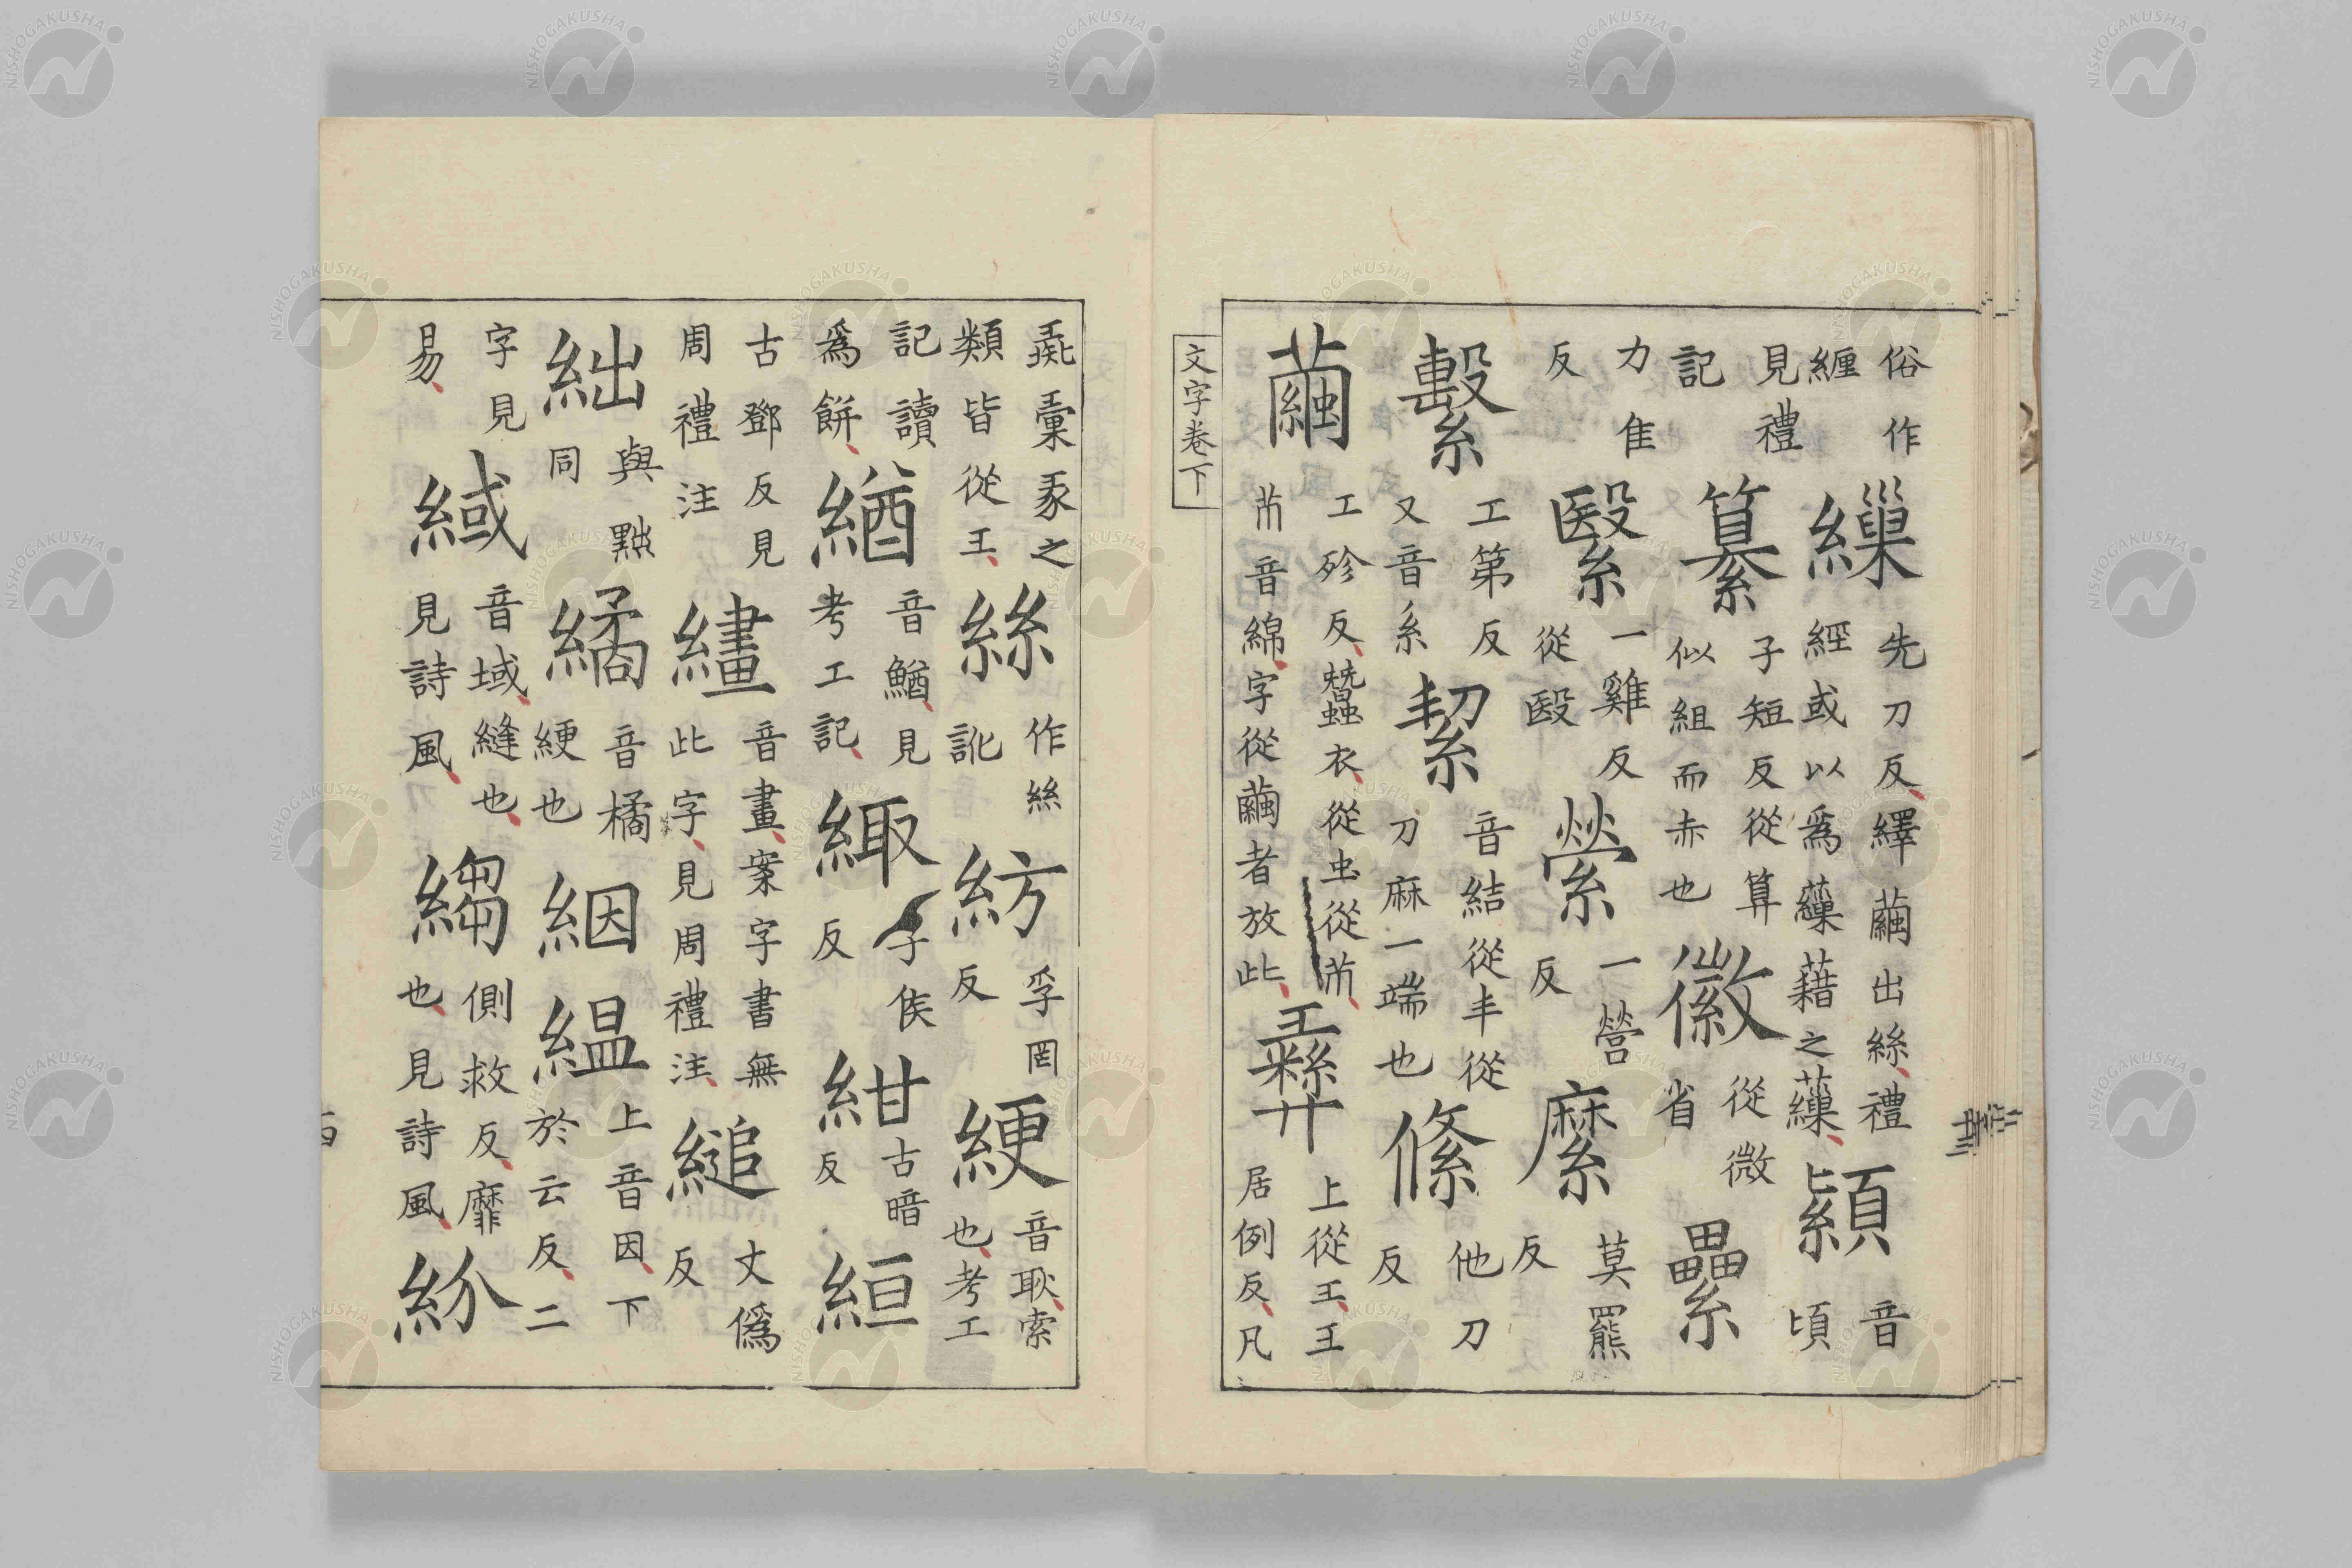 俗作纏繅先刀反繹繭出絲禮經或以爲藻藉之藻顈音頃
見禮記纂子短反從算似組而赤也徽從微省纍
力隹反繄一雞反從殹縈一營反縻莫羆反
繫工第反又音系絜音結從丰從刀麻一端也絛他刀反
繭工殄反蠶衣從虫從芇芇音綿字從繭者放此彝上從彑彑居例反凡
文字卷下
彘彙彖之類皆從彑絲作絲訛紡孚罔反綆音耿索也考工
記讀爲餅緧音鰌見考工記緅子侯反紺古暗反絙
古鄧反見周禮注繣音畫案字書無此字見周禮注縋丈僞反
絀與黜同繘音橘綆也絪縕上音因下於云反二
字見易緎音域縫也見詩風縐側救反靡也見詩風紛